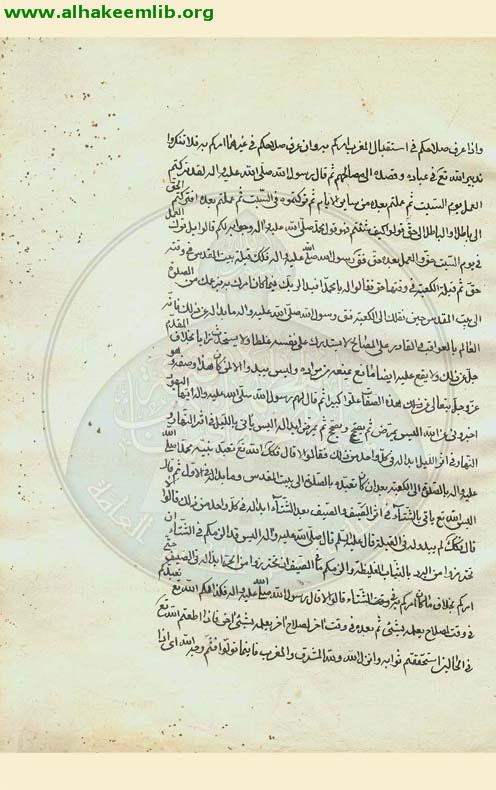 www.alhakeemlib.org
واذا عرف صلاحكم في استقبال المغرب امركم به وان عرف صلاحكم في غيرهما امركم به فلا تنكروا
تدبير الله تع في عباده وقصده الى مصالحهم ثم قال رسول الله صلى الله عليه واله لقد تركتم
العمل يوم السبت ثم عملتم بعده من سائر الايام ثم تركتموه في السبت ثم عملتم بعده افتركتم الحق
الى باطل او الباطل الى حق قولوا كيف شئتم فهو قول محمد صلى الله عليه واله وجوابه لكم قالوا بل ترك العمل
في يوم السبت حق والعمل بعده حق فقال رسول الله صلى الله عليه واله فكذلك قبلة بيت المقدس في وقته
حق ثم قبلة الكعبة في وقتها حق فقالوا له يا محمد افبدا لربك فيما كان امرك به بزعمك من الصلوة
الى بيت المقدس حين نقلك الى الكعبة فقال رسول الله صلى الله عليه واله ما بدا له عن ذلك فانه
العالم بالعواقب القادر على المصالح لا يستدرك على نفسه غلطا ولا يستحدث رايا بخلاف المتقدم
جل عن ذلك ولا يقع عليه ايضا مانع يمنعه من مراده وليس يبدو الا لمن كان هذا وصفه وهو
عز وجل يتعالى عن هذه الصفات علوا كبيرا ثم قال لهم رسول الله صلى الله عليه واله ايها اليهود
اخبروني عن الله اليس يمرض ثم يصح ويصح ثم يمرض ابدا له اليس ياتي بالليل في اثر النهار و
النهار في اثر الليل ابدا له في كل واحد من ذلك فقالوا لا قال فكذلك الله تع تعبد نبيه محمدا صلى الله
عليه واله بالصلوة الى الكعبة بعد ان كان تعبده بالصلوة الى بيت المقدس وما بدا له في الاول ثم قال
اليس الله تع ياتي بالشتاء في اثر الصيف والصيف بعد الشتاء ابدا له في كل واحد من ذلك قالوا لا
قال فكذلك لم يبد له في القبلة قال عليه السلم ثم قال صلى الله عليه واله اليس قد الزمكم في الشتاء ان
تحترزوا من البرد بالثياب الغليظة والزمكم في الصيف ان تحترزوا من الحر افبدا له في الصيف حتى
امركم بخلاف ما كان امركم به في الشتاء قالوا لا قال رسول الله صلى الله عليه واله فكذلكم الله تع تعبدكم
في وقت لصلاح يعلمه بشئ ثم بعده في وقت اخر لصلاح اخر يعلمه بشئ اخر فاذا اطعتم الله تع
في الحالين استحققتم ثوابه وانزل الله ولله المشرق والمغرب فاينما تولوا فثم وجه الله اى اذا